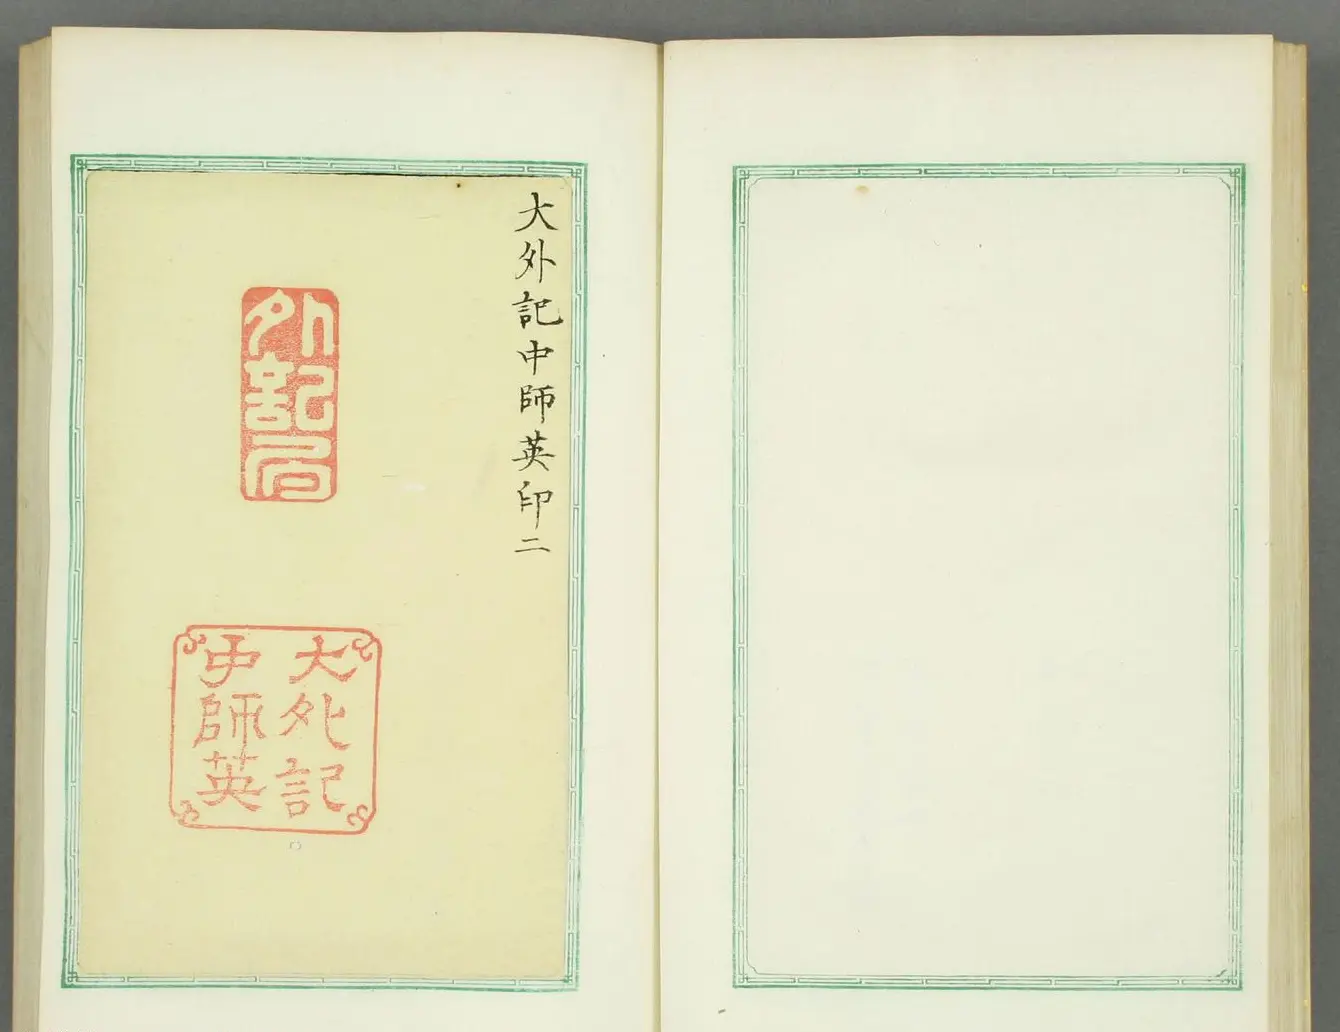 大外記中師英印二
外記局
大外記
中師英